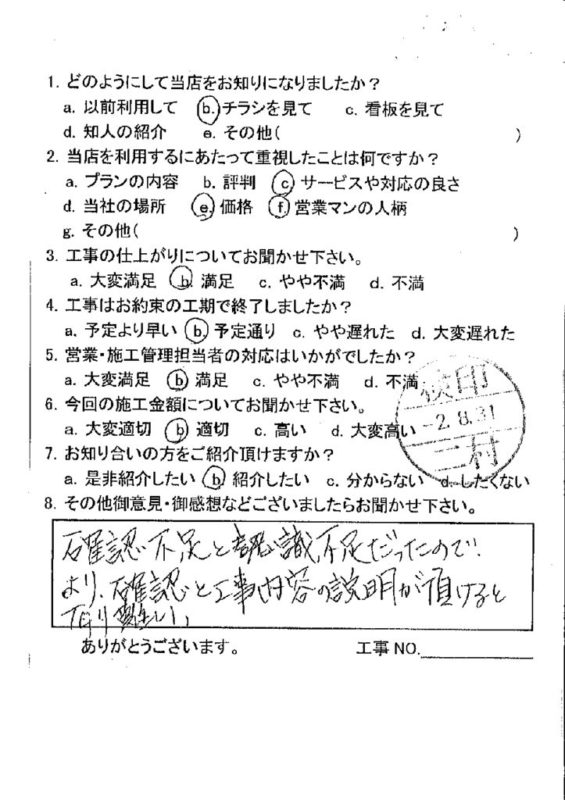 1. どのようにして当店をお知りになりましたか？
a. 以前利用して b. チラシを見て c. 看板を見て
d. 知人の紹介 e. その他( )
2. 当店を利用するにあたって重視したことは何ですか？
a. プランの内容 b. 評判 c. サービスや対応の良さ
d. 当社の場所 e. 価格 f. 営業マンの人柄
g. その他( )
3. 工事の仕上がりについてお聞かせ下さい。
a. 大変満足 b. 満足 c. やや不満 d. 不満
4. 工事はお約束の工期で終了しましたか？
a. 予定より早い b. 予定通り c. やや遅れた d. 大変遅れた
5. 営業・施工管理担当者の対応はいかがでしたか？
a. 大変満足 b 満足 c. やや不満 d. 不満
検印
6. 今回の施工金額についてお聞かせ下さい。
-2.8.31
a. 大変適切 b 適切 c. 高い d. 大変高い
二村
7. お知り合いの方をご紹介頂けますか？
a. 是非紹介したい b 紹介したい c. 分からない d. したくない
8. その他御意見・御感想などございましたらお聞かせ下さい。
確認不足と認識不足だったので、
より、確認と工事内容の説明が頂けると
有り難しい、
ありがとうございます。 工事NO.